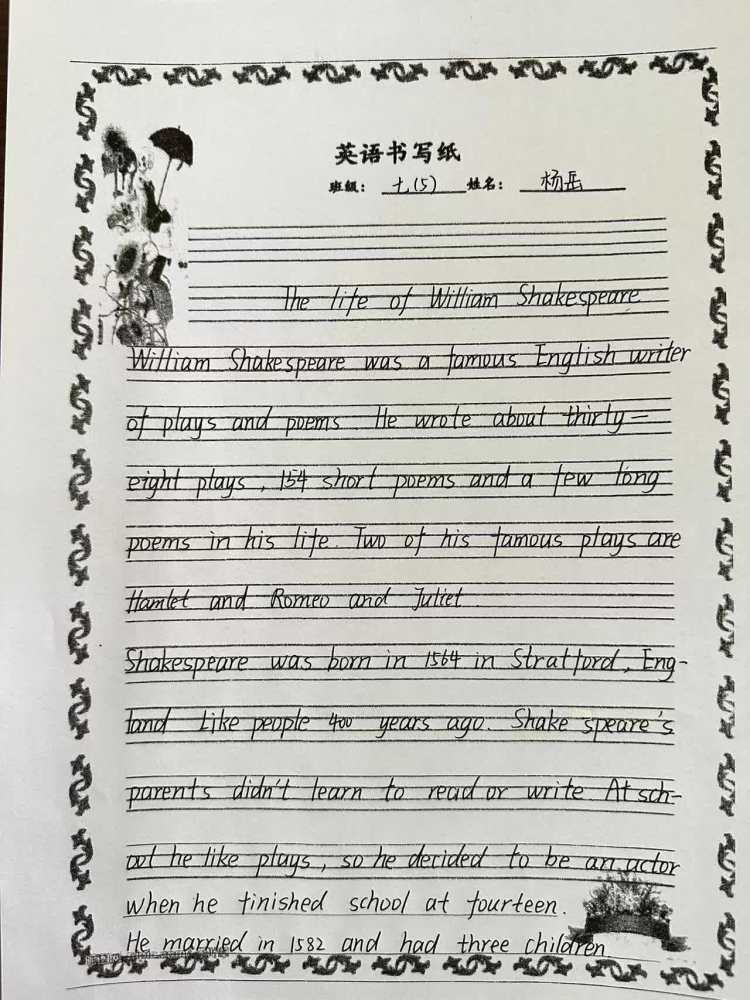 英语书写纸
班级: 九(5) 姓名: 杨岳
The life of William Shakespeare
William Shakespeare was a famous English writer
of plays and poems. He wrote about thirty-
eight plays, 154 short poems and a few long
poems in his life. Two of his famous plays are
Hamlet and Romeo and Juliet.
Shakespeare was born in 1564 in Stratford, Eng-
land Like people 400 years ago. Shake speare's
parents didn't learn to read or write At sch-
ool he like plays, so he decided to be an actor
when he finished school at fourteen.
He married in 1582 and had three children